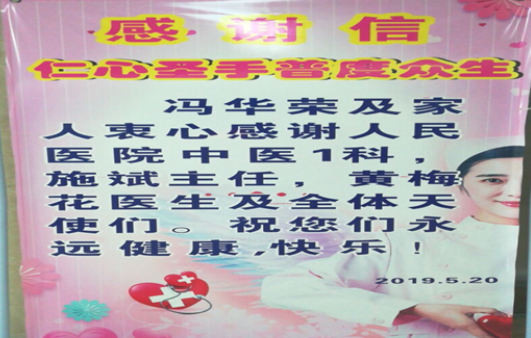 感谢信
仁心圣手普度众生
冯华荣及家
人衷心感谢人民
医院中医1科，
施斌主任，黄梅
花医生及全体天
使们。祝您们永
远健康,快乐！
2019.5.20